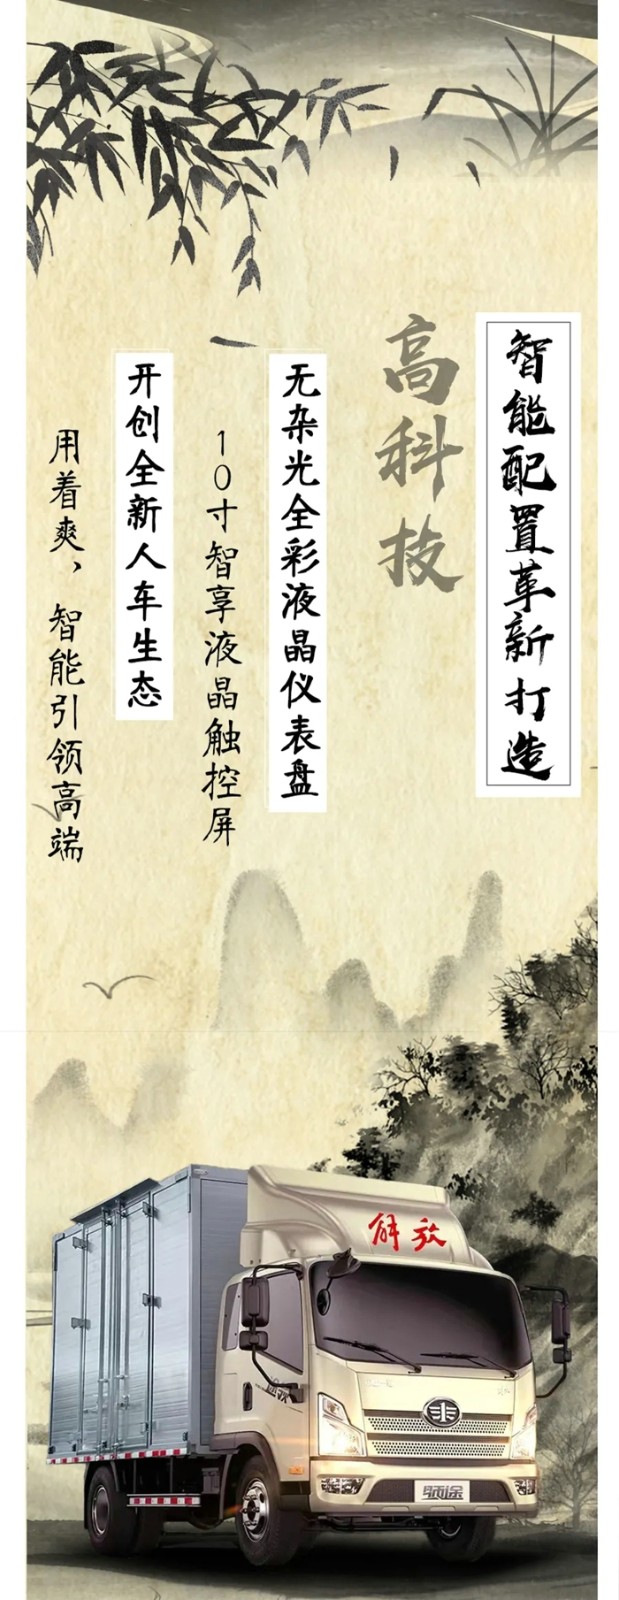 智能配置革新打造
高科技
无杂光全彩液晶仪表盘
10寸智享液晶触控屏
开创全新人车生态
用着爽，智能引领高端
解放
领途